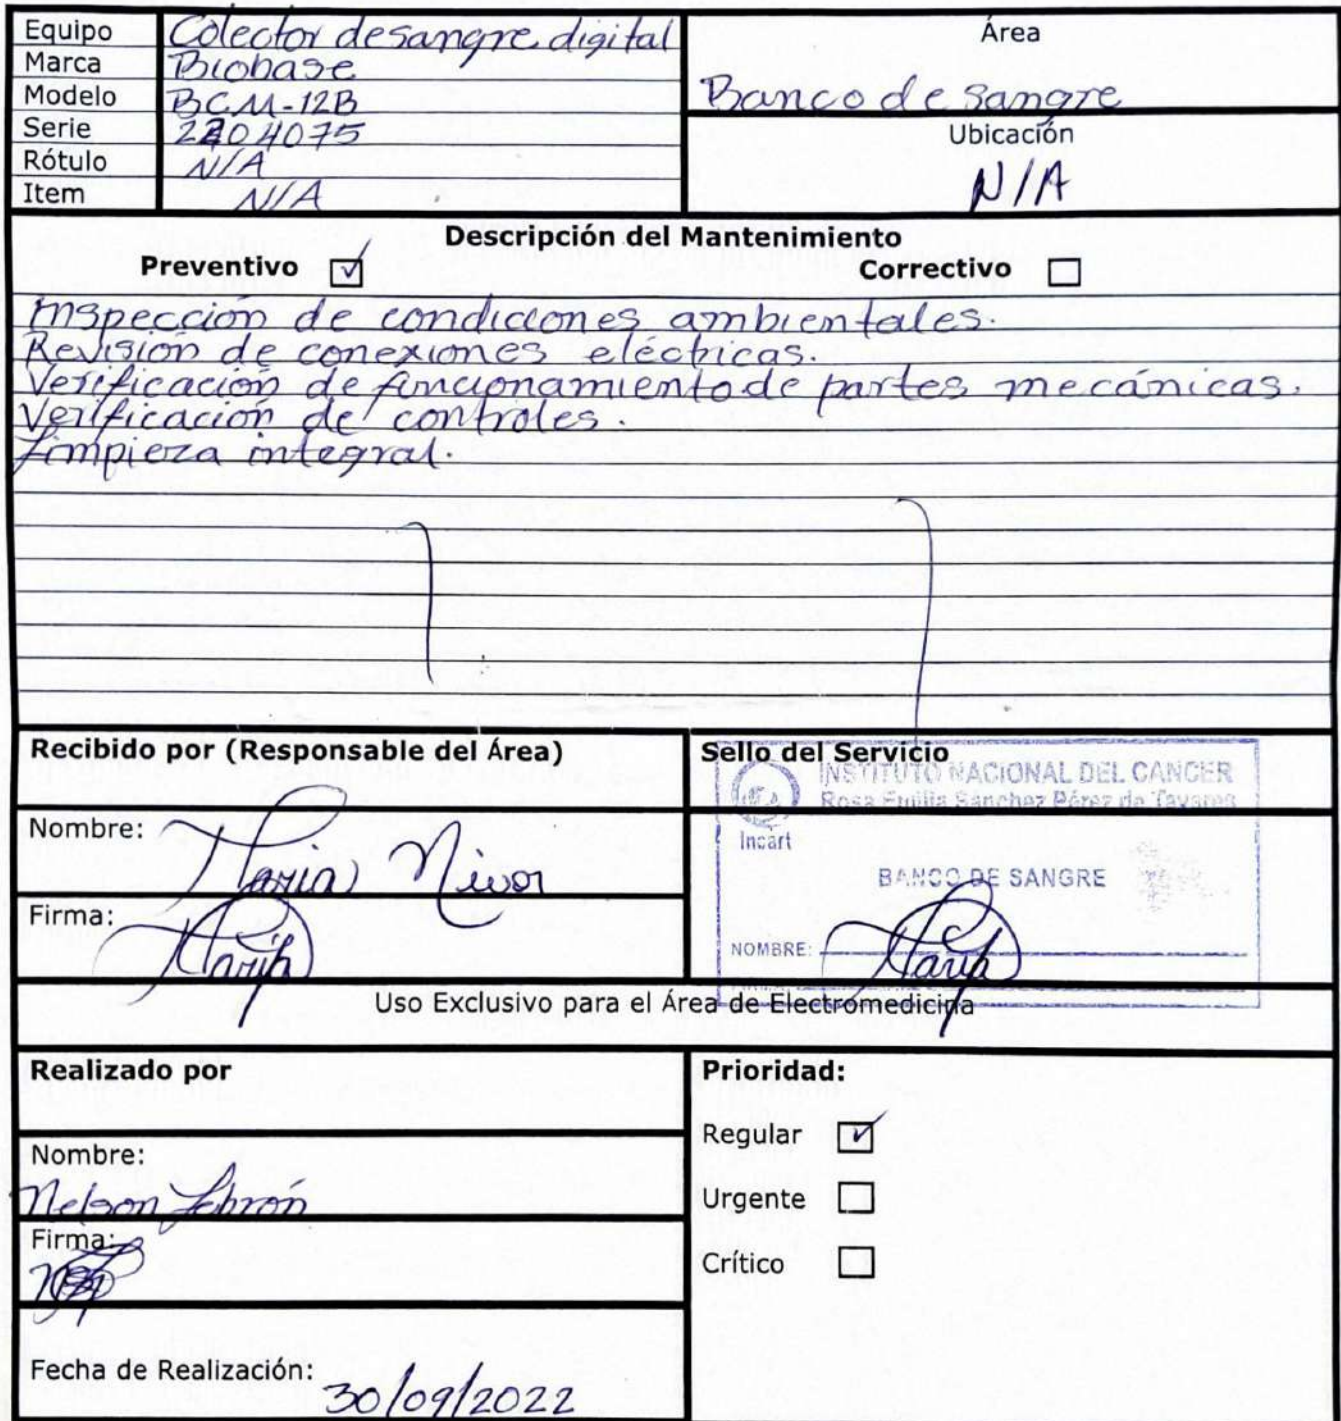 Equipo Colector de sangre digital
Marca Biobase
Modelo BCM-12B
Serie 2204075
Rótulo N/A
Item N/A
Área
Banco de sangre
Ubicación
N/A
Descripción del Mantenimiento
Preventivo Correctivo
Inspección de condiciones ambientales.
Revisión de conexiones eléctricas.
Verificación de funcionamiento de partes mecánicas.
Verificación de controles.
Limpieza integral.
Recibido por (Responsable del Área)
Nombre: Maria
Firma: Maria
Sello del Servicio
INSTITUTO NACIONAL DEL CANCER
Rosa Emilia Sánchez Pérez de Tavares
Incart
BANCO DE SANGRE
NOMBRE: Maria
Uso Exclusivo para el Área de Electromedicina
Realizado por
Nombre:
Nelson Lebrón
Firma:
Fecha de Realización: 30/09/2022
Prioridad:
Regular
Urgente
Crítico